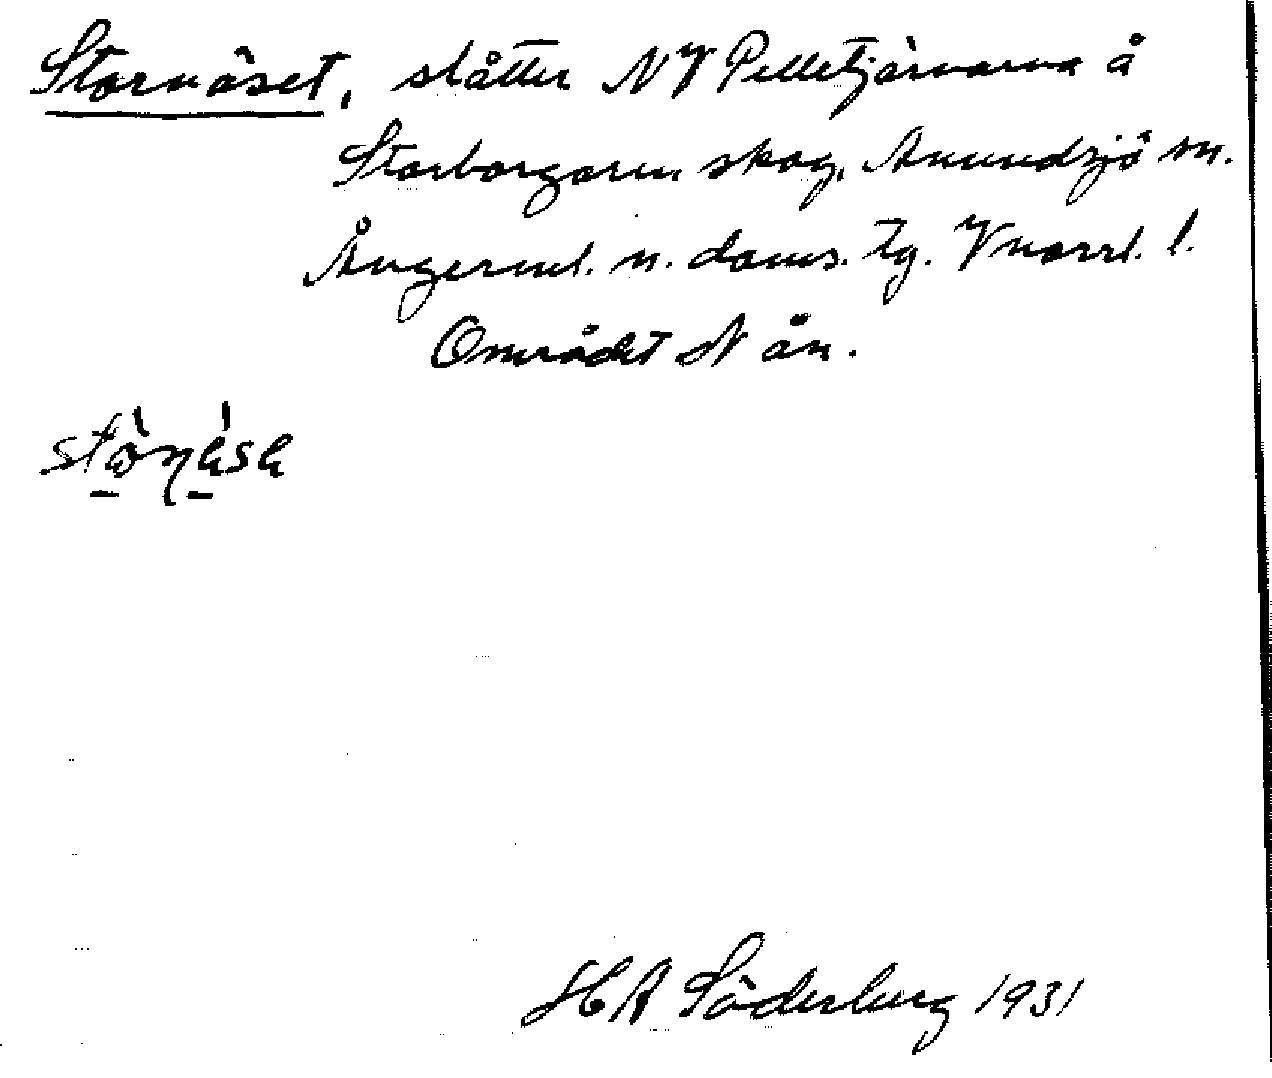 Stornäset, slåtter NV Pelletjärnarna å
Storborgaren skog, Anundsjö sn.
Ångerml. n. doms. tg. Vnorrl. l.
Området N ån.
HA Söderberg 1931